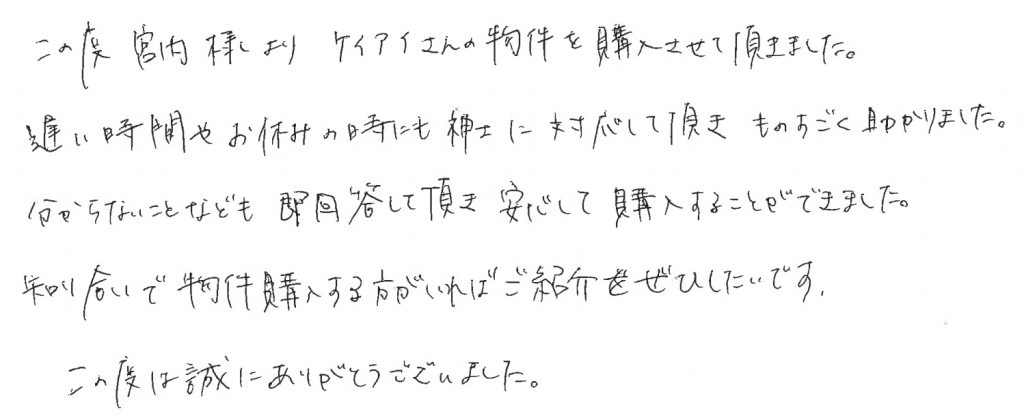 この度 宮内様より ケイアイさんの物件を購入させて頂きました。
遅い時間やお休みの時にも紳士に対応して頂き ものすごく助かりました。
分からないことなども 即回答して頂き 安心して 購入することができました。
知り合いで物件購入する方がいればご紹介をぜひしたいです.
この度は誠にありがとうございました。